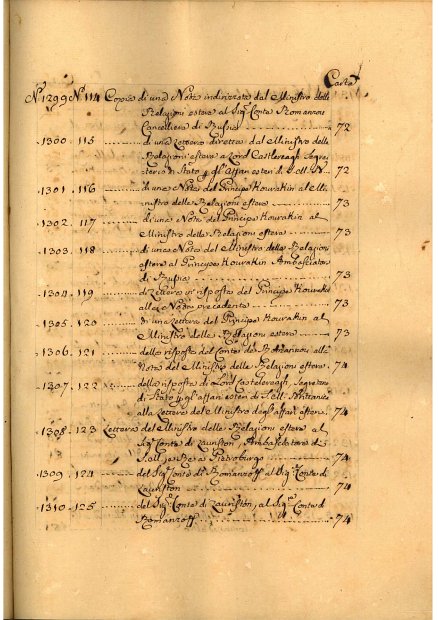 Carta
N.º 1299 N.º 114 Copia di una Nota indirizzata dal Ministro delle
Relazioni estere al Sig.r Conte Romanzow
Cancelliere di Russia 72
1300. 115 di una Lettera diretta dal Ministro delle
Relazioni estere a Lord Castlereagh Segre
tario di Stato per gl'affari esteri di S. M. 72
1301. 116 di una Nota del Principe Kourakin al Mi
nistro delle Relazioni estere 73
1302. 117 di una Nota del Principe Kourakin al
Ministro delle Relazioni estere 73
1303. 118 di una Nota del Ministro delle Relazioni
estere al Principe Kourakin Ambasciator
di Russia 73
1304. 119 di Lettera in risposta del Principe Kourakin
alla Nota precedente 73
1305. 120 di una Lettera del Principe Kourakin al
Ministro delle Relazioni estere 73
1306. 121 della risposta del Conte de Romanzow alla
Nota del Ministro delle Relazioni estere 74
1307. 122 della risposta di Lord Castelereagh, Segretario
di Stato per gl'affari esteri di S. M. Britannica
alla Lettera del Ministro degl'affari esteri 74
1308. 123 Lettera del Ministro delle Relazioni estere al
Sig.r Conte di Lauriston, Ambasciatore di
Pietroburgo 74
1309. 124 del Sig.r Conte di Romanzoff al Sig.r Conte di
Lauriston 74
1310. 125 del Sig.r Conte di Lauriston, al Sig.r Conte di
Romanzoff 74